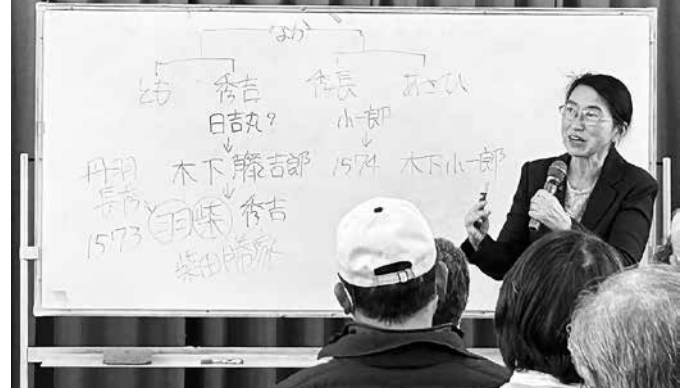 なか
とも 秀吉 秀長 あさひ
日吉丸? 小一郎
丹羽 木下藤吉郎 1574 木下小一郎
長秀
1573 羽柴 秀吉
柴田勝家